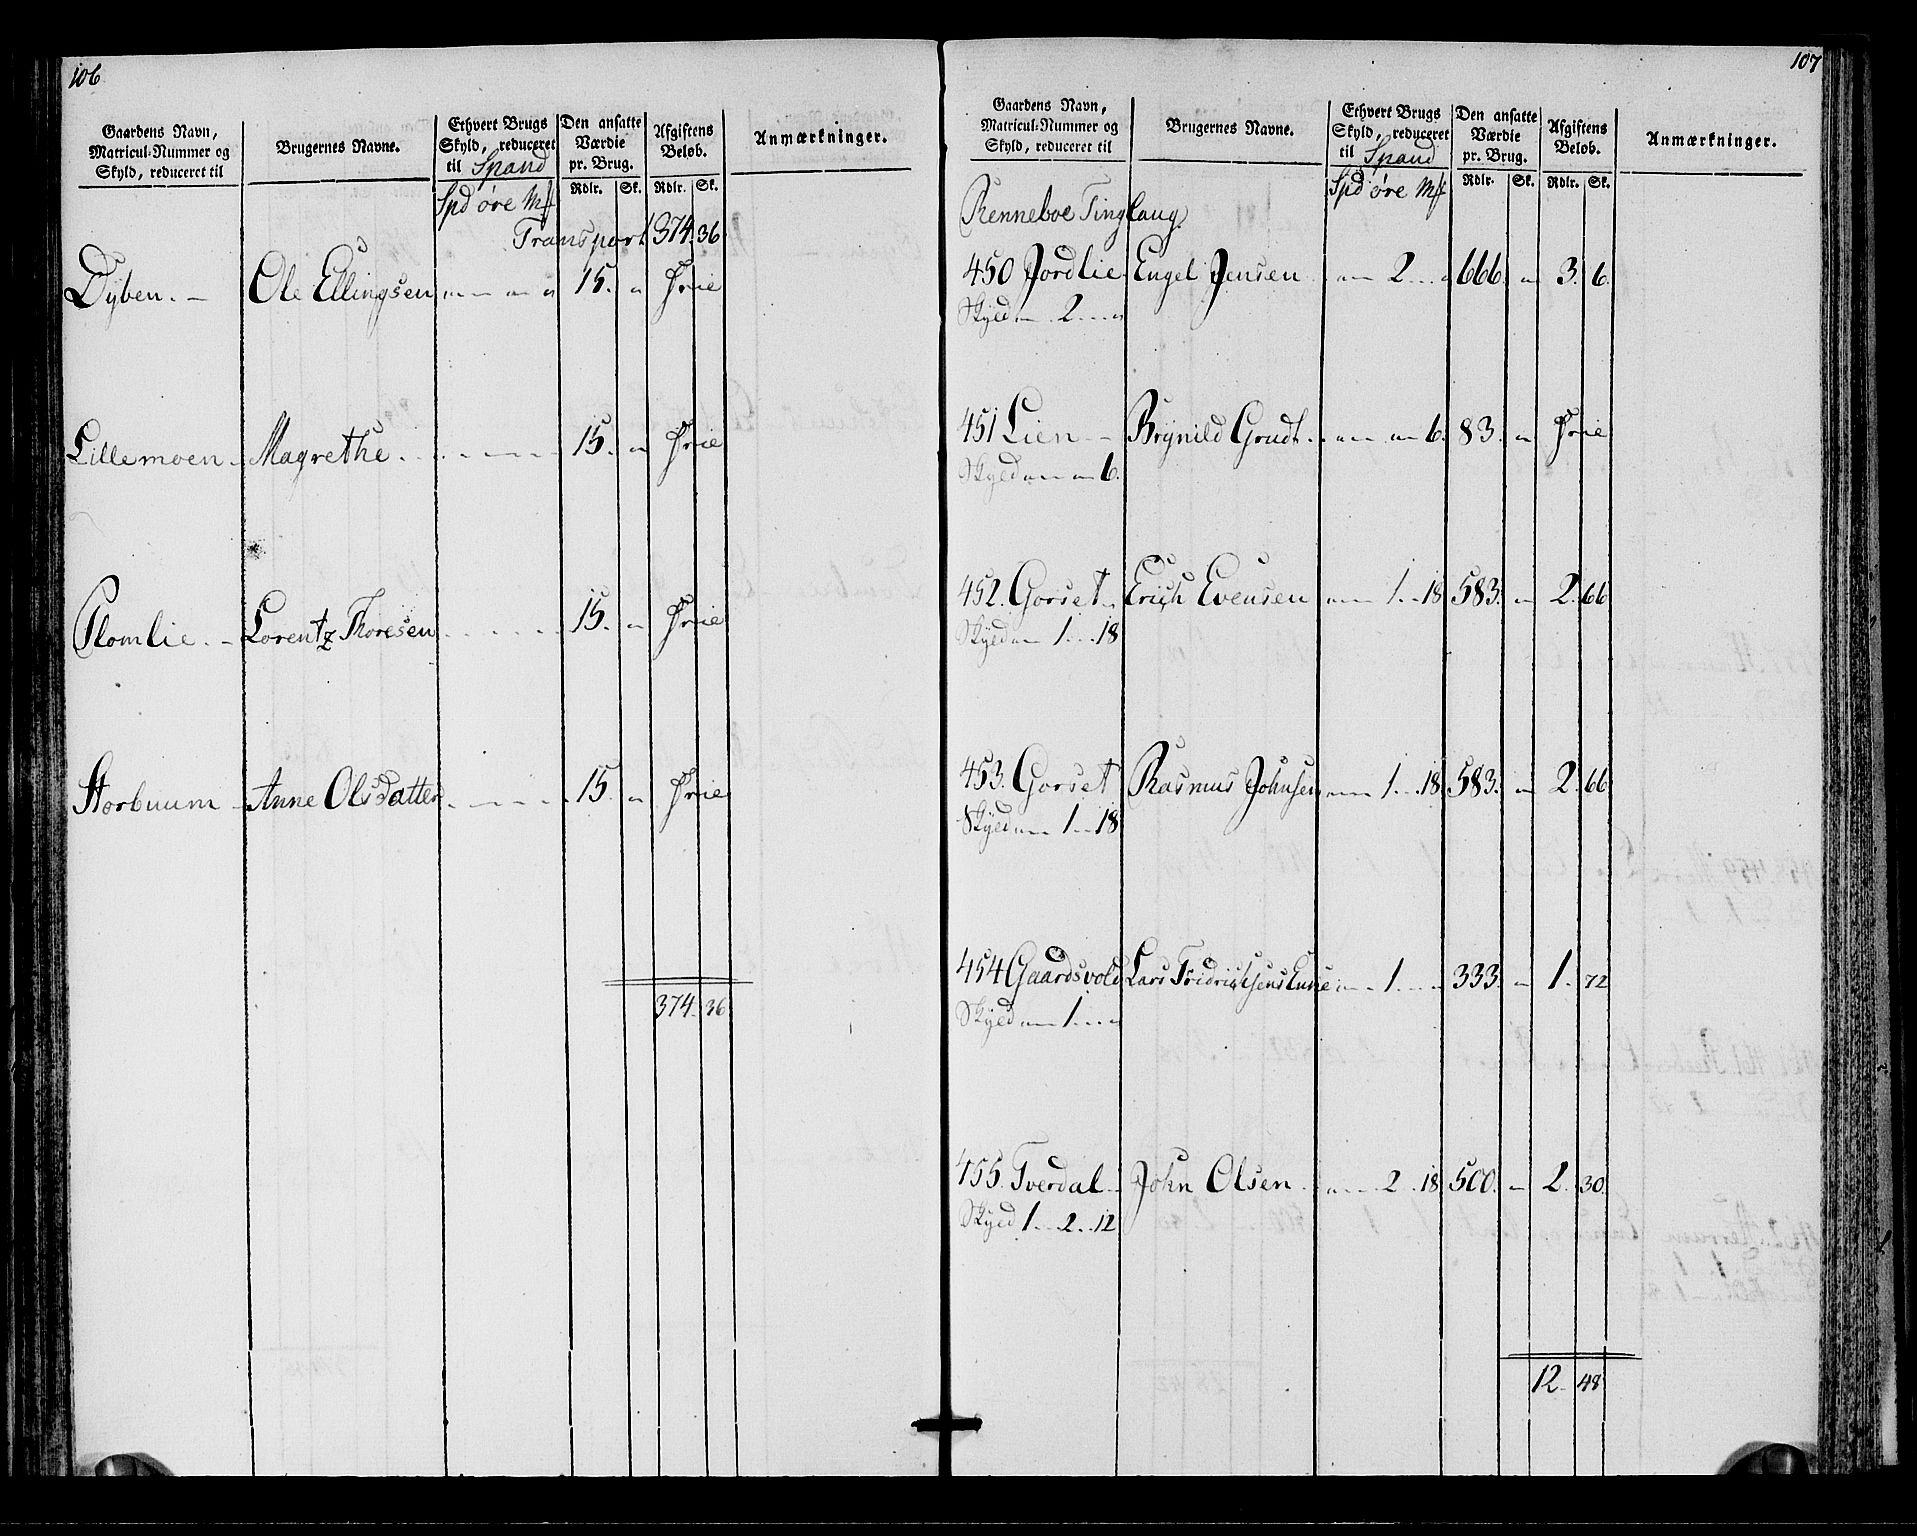 106
Gaardens Navn, Matricul-Nummer og Skyld, reduceret til
Brugernes Navne.
Ethvert Brugs Skyld, reduceret til Spand
Den ansatte Værdie pr. Brug.
Afgiftens Beløb.
Anmærkninger.
Rdlr. Sk. Rdlr. Sk.
Spd øre
Transport 374. 36
Dyben. Ole Ellingsen 15. Frie
Lillemoen Magrethe 15. Frie
Plomlie. Lorentz Thoresen 15. Frie
Storbuum Anne Olsdatter 15. Frie
374. 36
107
Gaardens Navn, Matricul-Nummer og Skyld, reduceret til
Brugernes Navne.
Ethvert Brugs Skyld, reduceret til Spand
Den ansatte Værdie pr. Brug.
Afgiftens Beløb.
Anmærkninger.
Rdlr. Sk. Rdlr. Sk.
Spd øre
Renneboe Tinglaug
450 Jordlie Engel Jensen 2 666. 3. 6.
Skyld 2
451 Lien Brynild Grudt 6. 83. Frie
Skyld 6.
452. Gorset Erich Evensen 1 18 583. 2. 66
Skyld 1 18
453. Gorset Rasmus Johnsen 1 18 583. 2. 66
Skyld 1 18
454 Gaardsvold Lars 1 333. 1. 72
Skyld 1
455. Tverdal John Olsen 2 18 500. 2. 30.
Skyld 1 2 12
12. 48